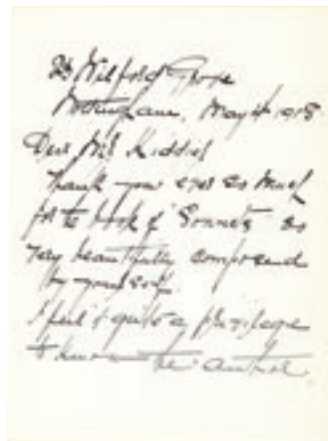 Wilford Grove
Nottingham, May 1918
Dear Mr Kiddier
Thank you ever so much
for the book of Sonnets so
very beautifully composed
by yourself.
I feel it quite a privilege
to know the author